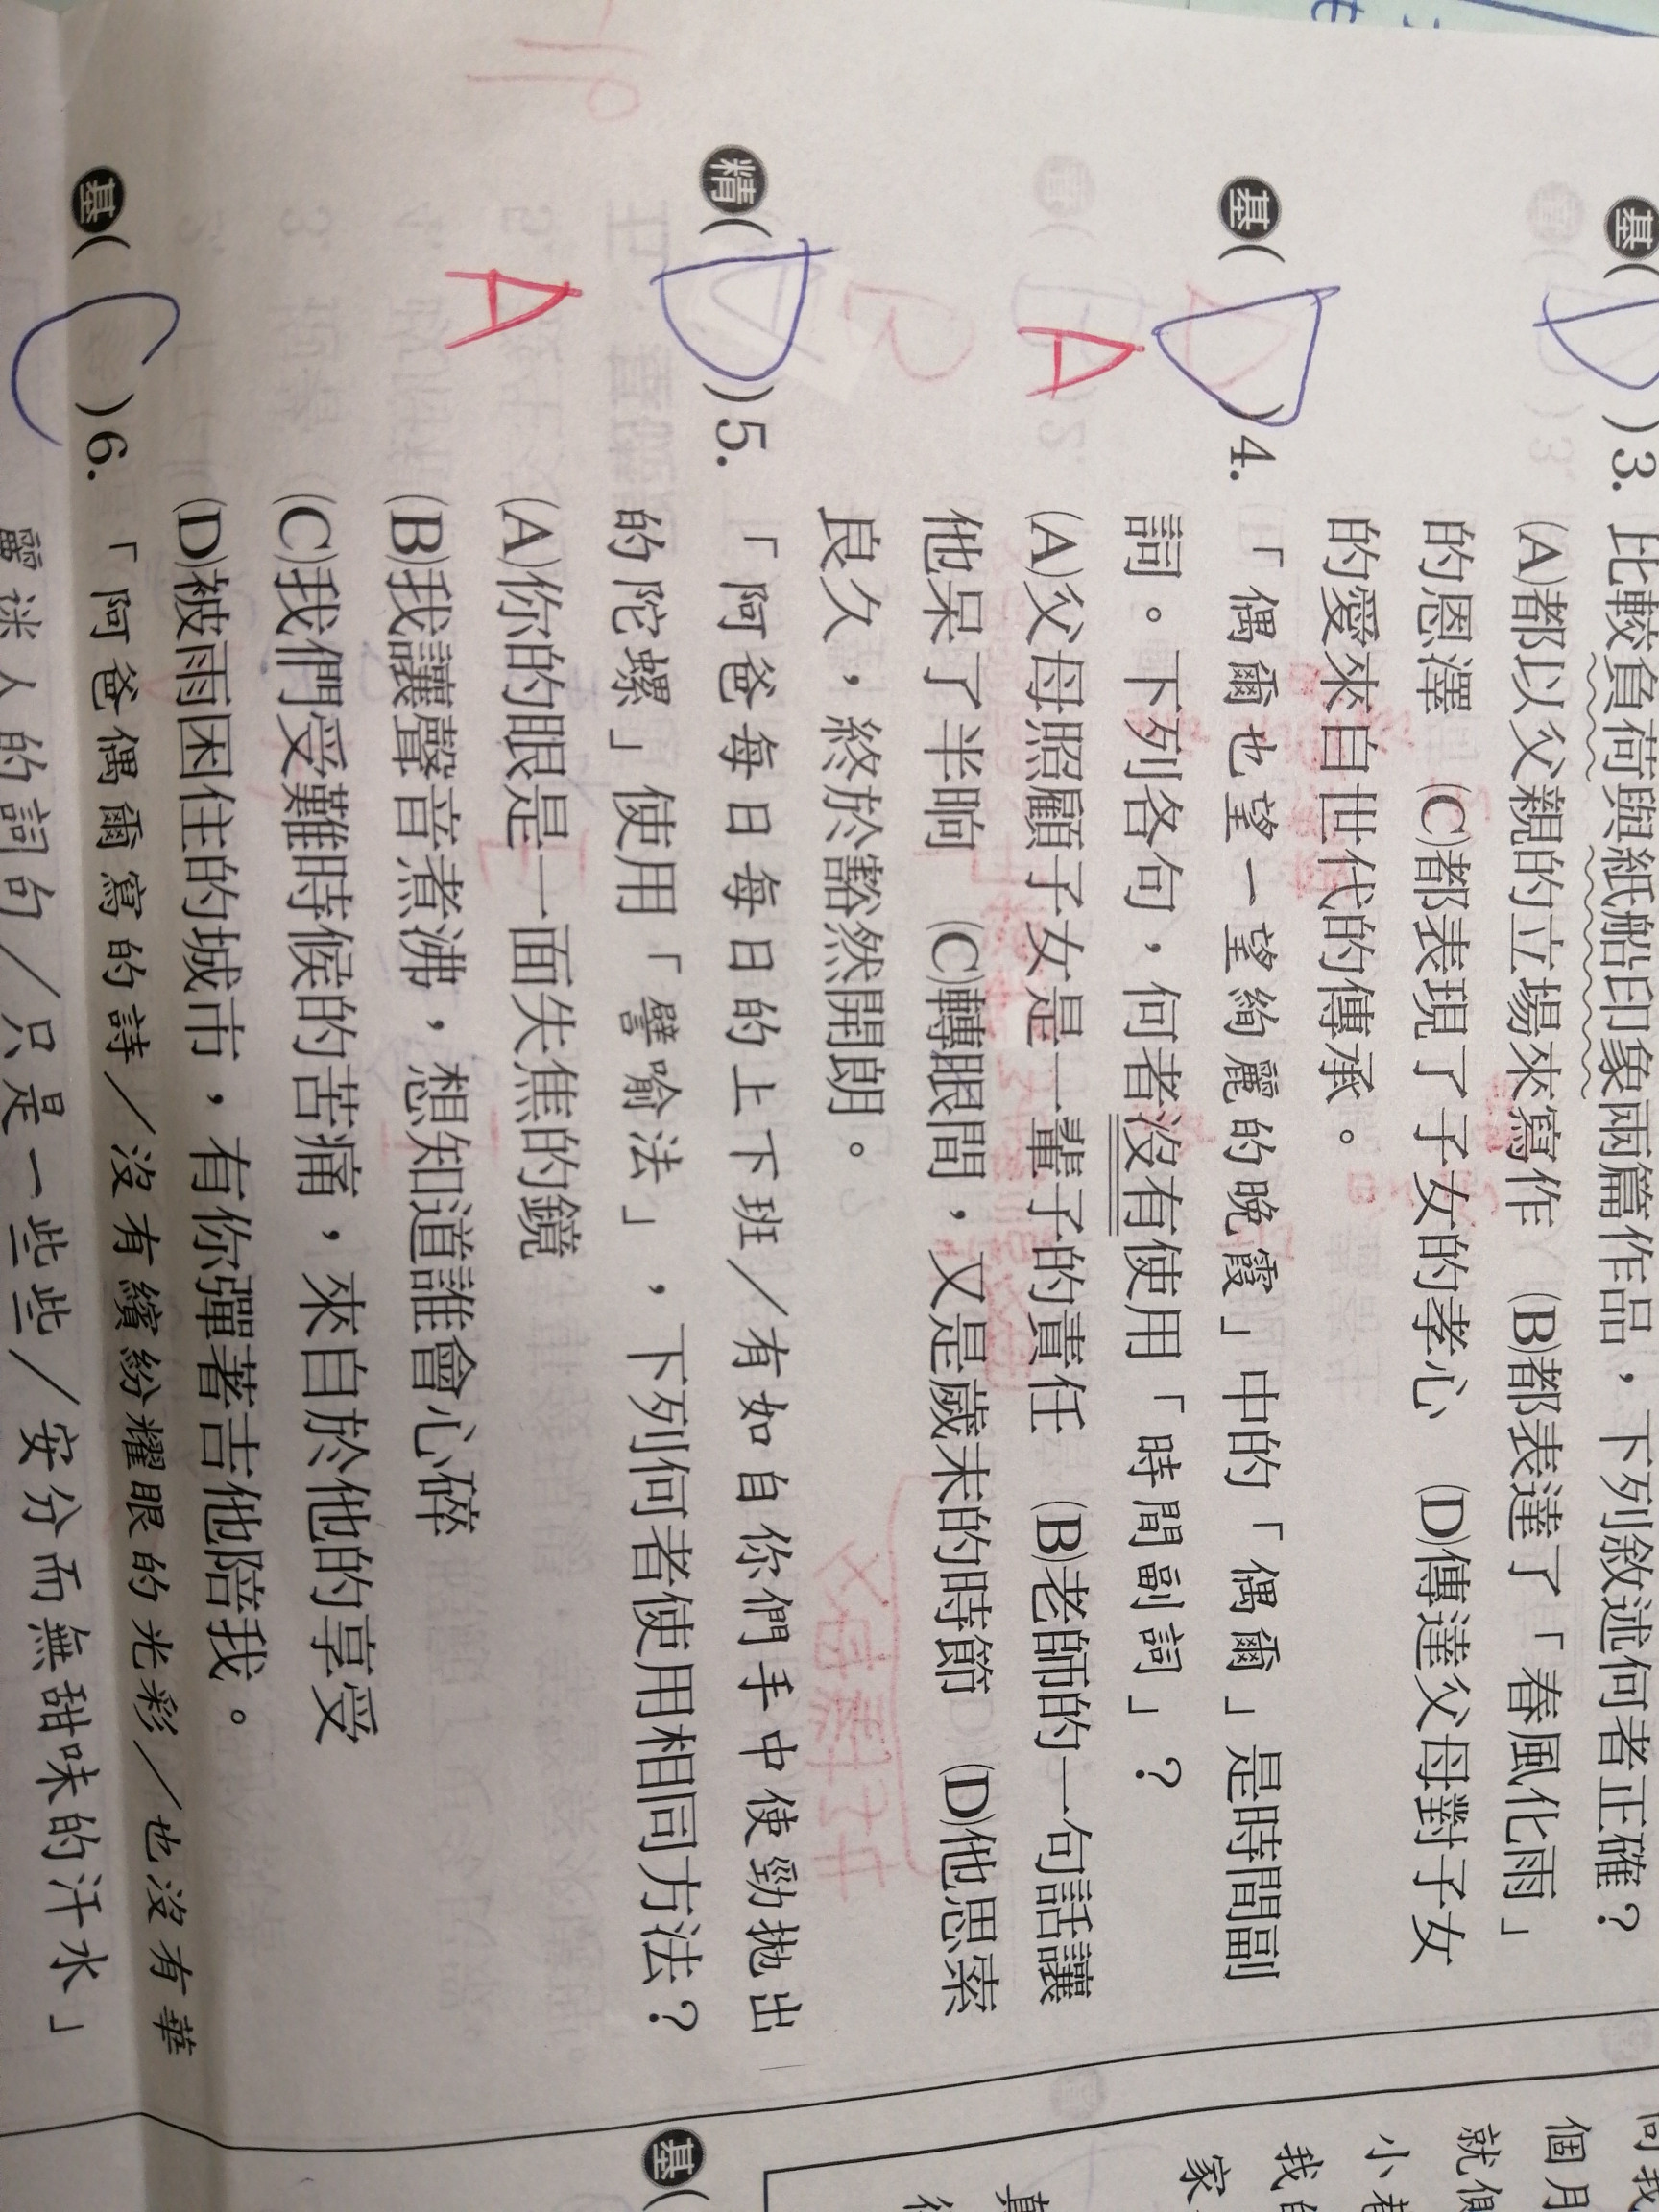 基( D )3. 比較負荷與紙船印象兩篇作品，下列敘述何者正確？
(A)都以父親的立場來寫作 (B)都表達了「春風化雨」
的恩澤 (C)都表現了子女的孝心 (D)傳達父母對子女
的愛來自世代的傳承。
基( D )4. 「偶爾也望一望絢麗的晚霞」中的「偶爾」是時間副
詞。下列各句，何者沒有使用「時間副詞」？
A
(A)父母照顧子女是一輩子的責任 (B)老師的一句話讓
他呆了半晌 (C)轉眼間，又是歲末的時節 (D)他思索
良久，終於豁然開朗。
精( D )5. 「阿爸每日每日的上下班／有如自你們手中使勁拋出
的陀螺」使用「譬喻法」，下列何者使用相同方法？
A
(A)你的眼是一面失焦的鏡
(B)我讓聲音煮沸，想知道誰會心碎
(C)我們受難時候的苦痛，來自於他的享受
(D)被雨困住的城市，有你彈著吉他陪我。
基( C )6. 「阿爸偶爾寫的詩／沒有繽紛耀眼的光彩／也沒有華
麗迷人的詞句／只是一些些／安分而無甜味的汗水」
基(
個月
就像
小巷
我的
家